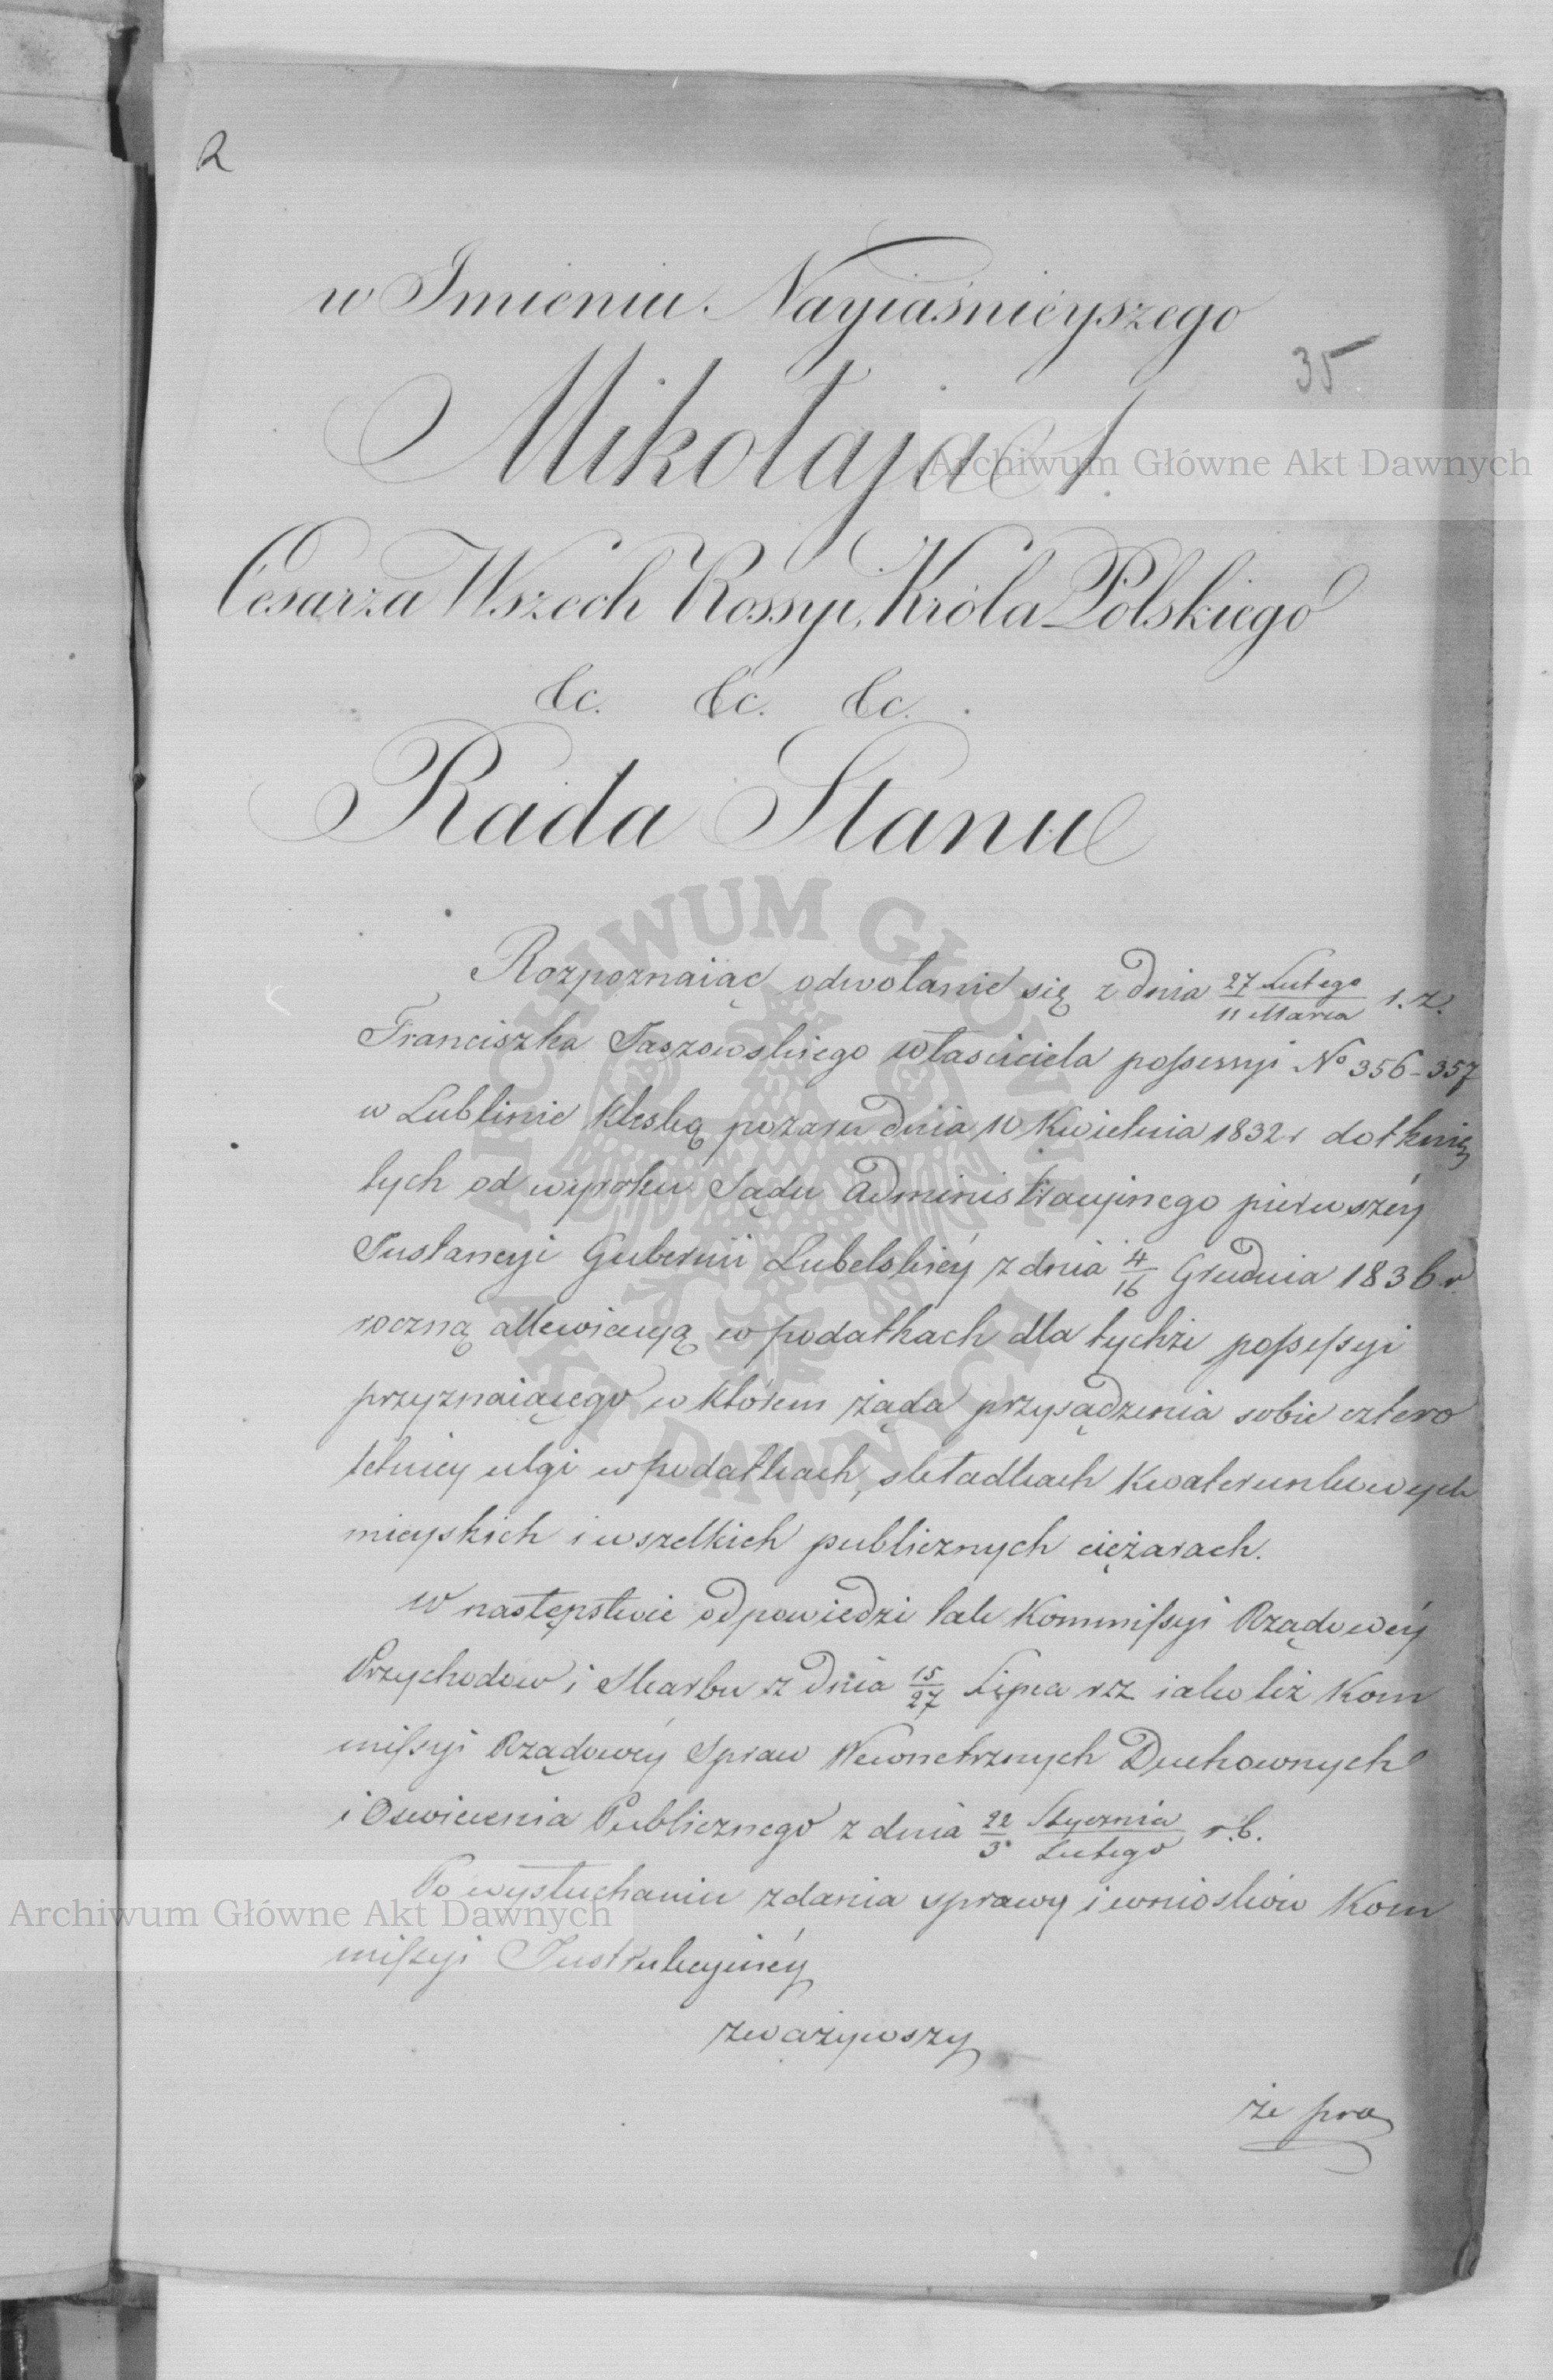 2
w Imieniu Nayiaśnieyszego
35
Mikołaja I.
Cesarza Wszech Rossyi, Króla Polskiego
&c. &c. &c.
Rada Stanu
Rozpoznaiąc odwołanie się z dnia 27 Lutego / 11 Marca r. z.
Franciszka Jaszowskiego właściciela possessyi No 356-357
w Lublinie klęską pożaru dnia 10 Kwietnia 1832 r dotknię
tych od wyroku Sądu Administracyjnego pierwszéy
Instancyi Gubernii Lubelskiéy z dnia 4/16 Grudnia 1836 r.
roczną allewiacyą w podatkach dla tychże possessyi
przyznaiącego w którem żąda przysądzenia sobie cztero
letniey ulgi w podatkach, składkach Kwaterunkowych
mieyskich i wszelkich publicznych ciężarach.
W następstwie odpowiedzi tak Kommissyi Rządowéy
Przychodów i Skarbu z dnia 15/27 Lipca r z iako też Kom
missyi Rządowéy Spraw Wewnetrznych Duchownych
i Oswiecenia Publicznego z dnia 22 Stycznia / 3 Lutego r. b.
Po wysłuchaniu zdania sprawy i wniosków Kom
missyi Instrukcyinéy
zważywszy
że pra
Archiwum Główne Akt Dawnych
Archiwum Główne Akt Dawnych
ARCHIWUM GŁÓWNE AKT DAWNYCH